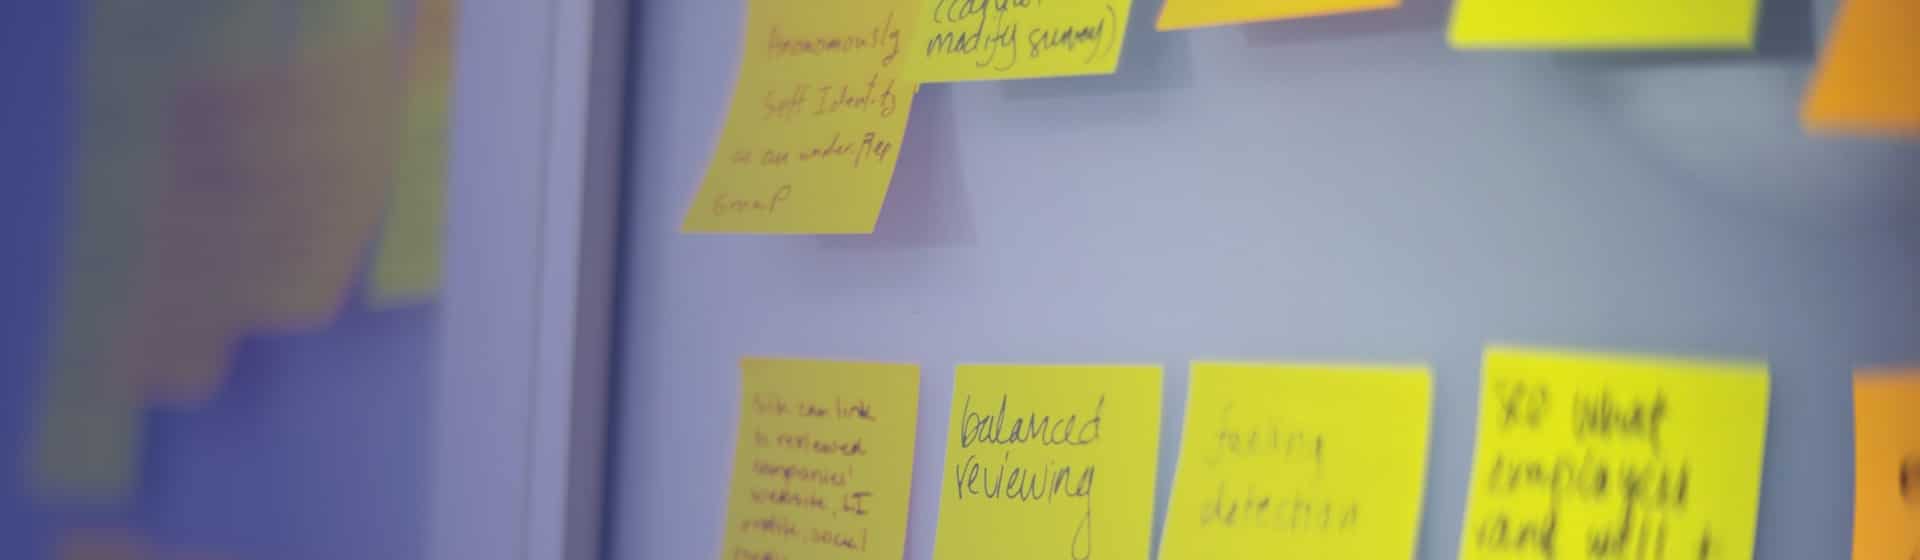 Anonomously
Self Identify
as an under Rep
Group
modify survey)
Site can link
to reviewed
companies'
website, LI
profile, social
balanced
reviewing
detection
see what
employees
rank well